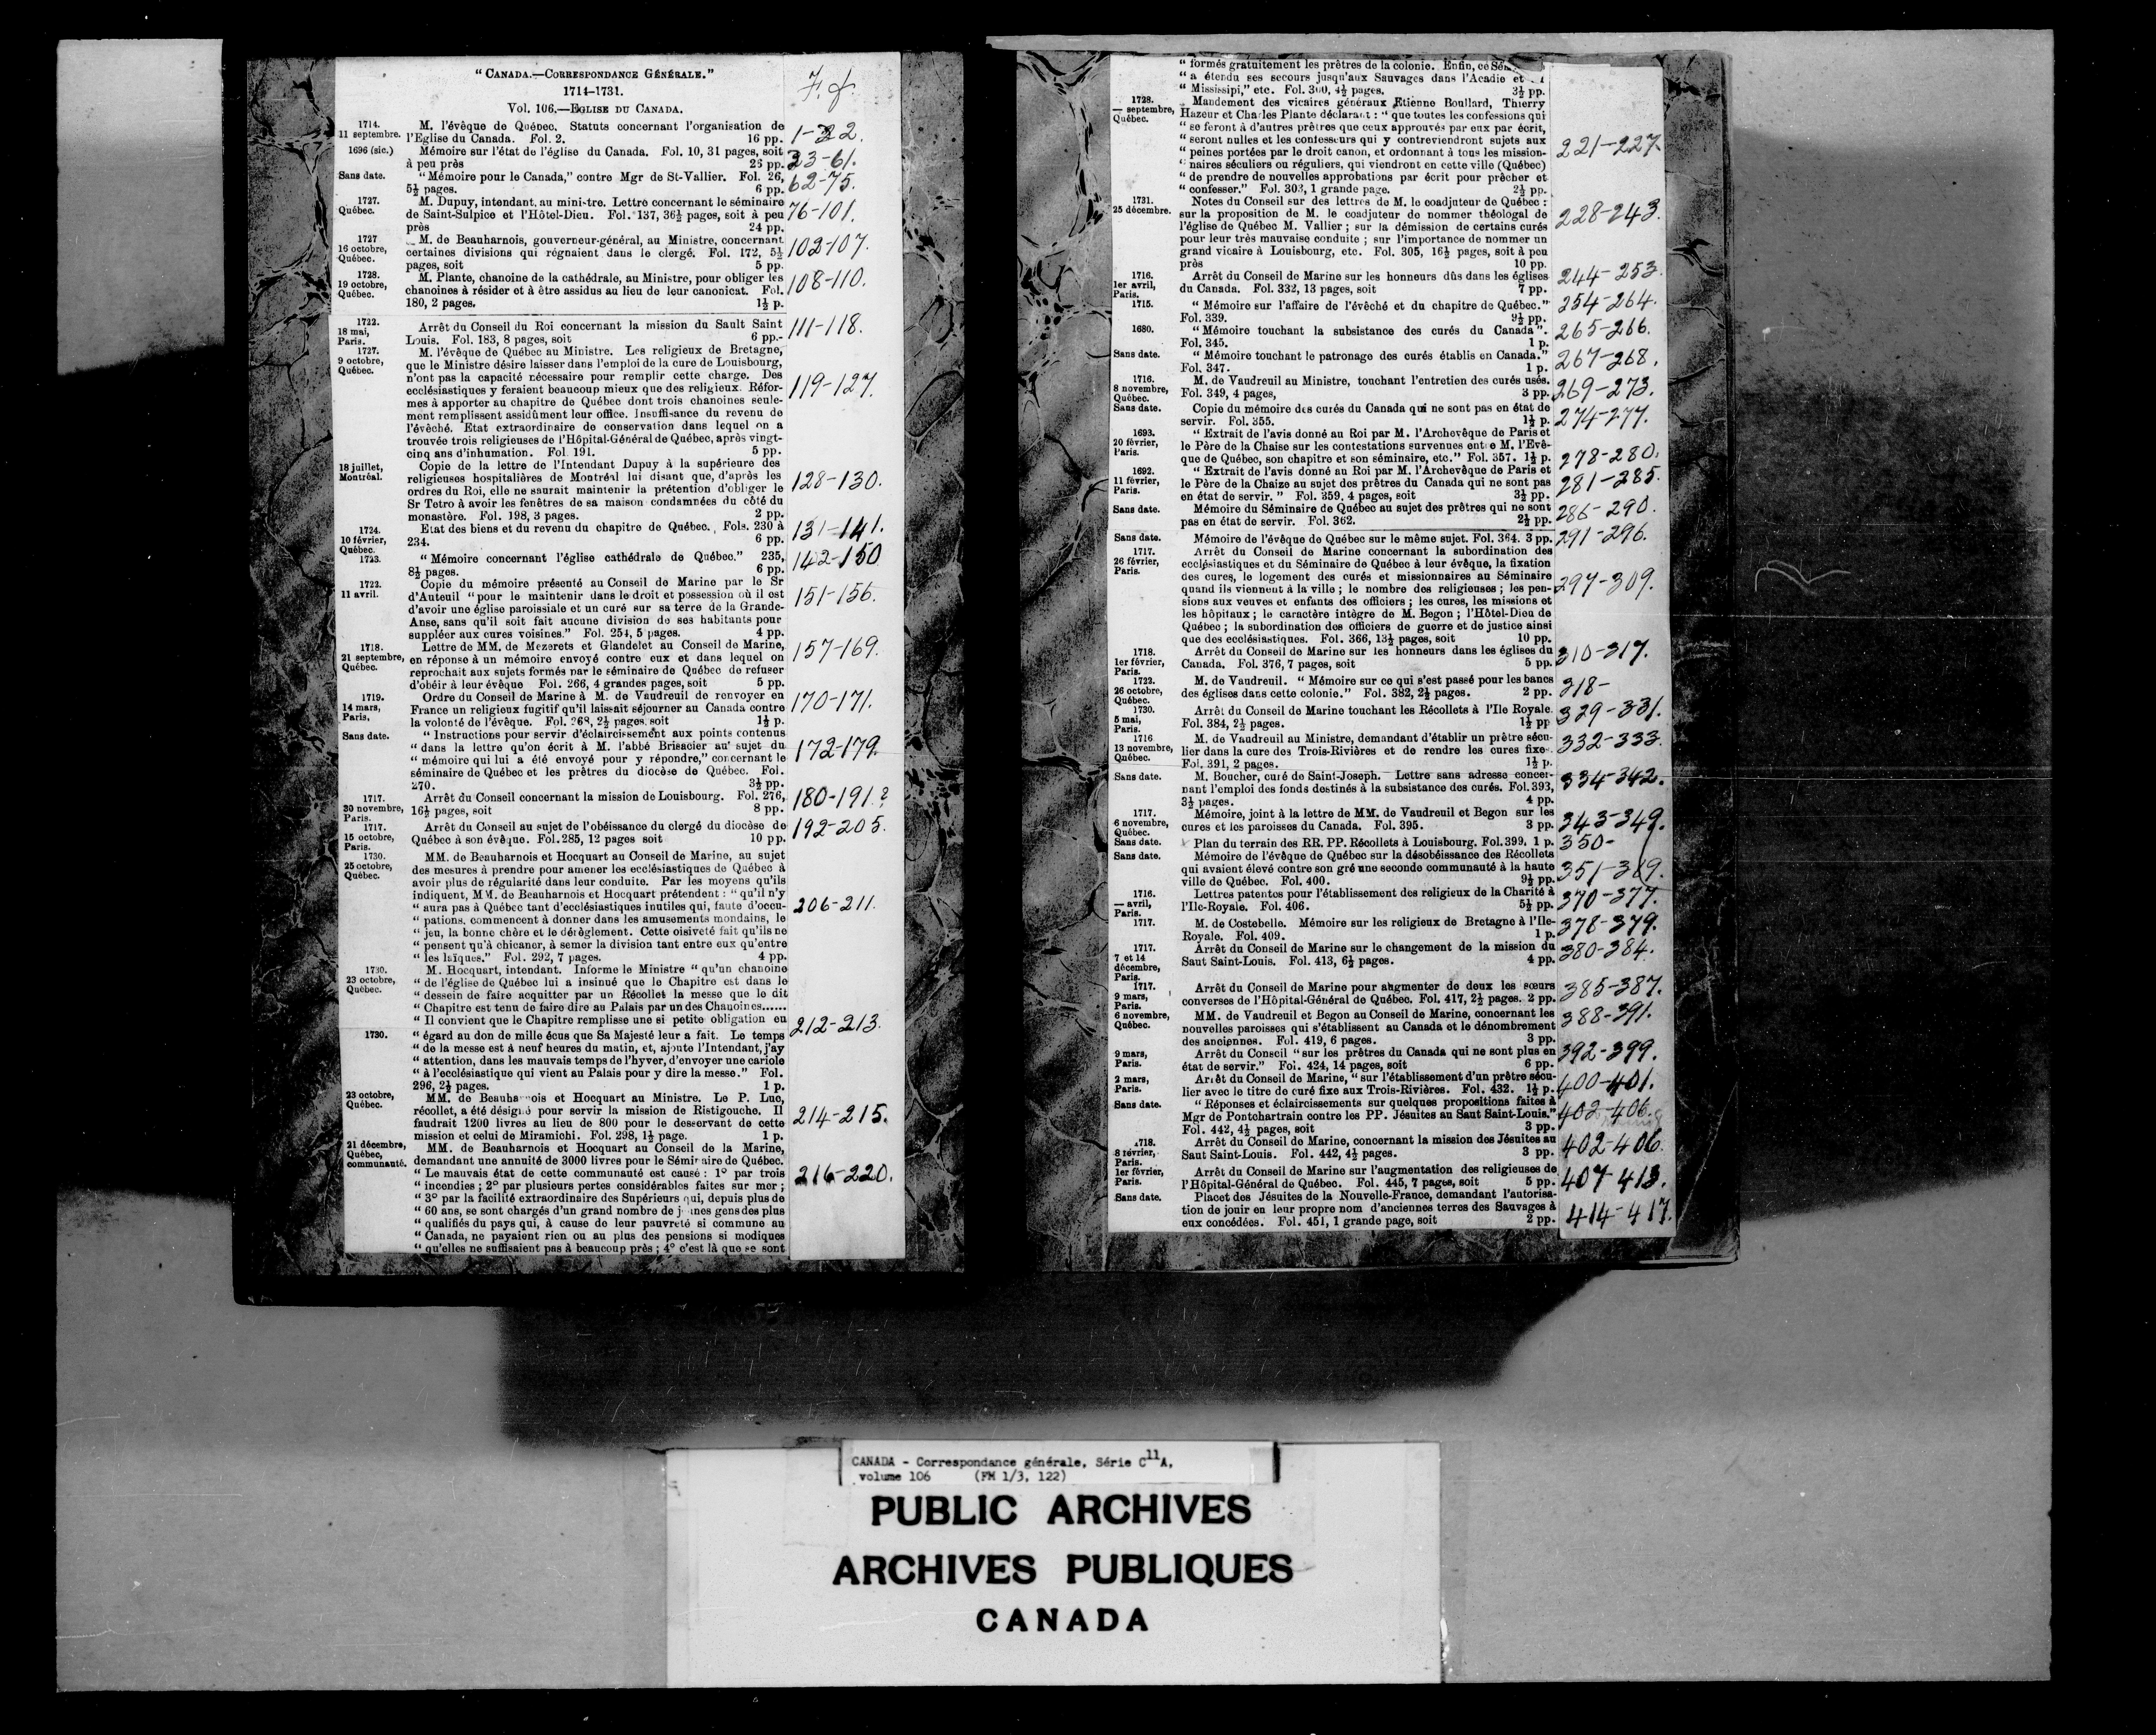 “ CANADA.—CORRESPONDANCE GÉNÉRALE.”
1714–1731.
Vol. 106.—EGLISE DU CANADA.
1714.
11 septembre.
M. l'évêque de Québec. Statuts concernant l'organisation de
l'Eglise du Canada. Fol. 2. 16 pp.
1-22.
1696 (sic.)
Mémoire sur l'état de l'église du Canada. Fol. 10, 31 pages, soit
à peu près 26 pp.
23-61.
Sans date.
“ Mémoire pour le Canada,” contre Mgr de St-Vallier. Fol. 26,
5½ pages. 6 pp.
62-75.
1727.
Québec.
M. Dupuy, intendant, au ministre. Lettre concernant le séminaire
de Saint-Sulpice et l'Hôtel-Dieu. Fol. 137, 36½ pages, soit à peu
près 24 pp.
76-101.
1727
16 octobre,
Québec.
M. de Beauharnois, gouverneur-général, au Ministre, concernant
certaines divisions qui régnaient dans le clergé. Fol. 172, 5½
pages, soit 5 pp.
102-107.
1728.
19 octobre,
Québec.
M. Plante, chanoine de la cathédrale, au Ministre, pour obliger les
chanoines à résider et à être assidus au lieu de leur canonicat. Fol.
180, 2 pages. 1½ p.
108-110.
1722.
18 mai,
Paris.
Arrêt du Conseil du Roi concernant la mission du Sault Saint
Louis. Fol. 183, 8 pages, soit 6 pp.
111-118.
1727.
9 octobre,
Québec.
M. l'évêque de Québec au Ministre. Les religieux de Bretagne,
que le Ministre désire laisser dans l'emploi de la cure de Louisbourg,
n'ont pas la capacité nécessaire pour remplir cette charge. Des
ecclésiastiques y feraient beaucoup mieux que des religieux. Réfor-
mes à apporter au chapitre de Québec dont trois chanoines seule-
ment remplissent assidûment leur office. Insuffisance du revenu de
l'évêché. Etat extraordinaire de conservation dans lequel on a
trouvée trois religieuses de l'Hôpital-Général de Québec, après vingt-
cinq ans d'inhumation. Fol. 191. 5 pp.
119-127.
18 juillet,
Montréal.
Copie de la lettre de l'Intendant Dupuy à la supérieure des
religieuses hospitalières de Montréal lui disant que, d'après les
ordres du Roi, elle ne saurait maintenir la prétention d'obliger le
Sr Tetro à avoir les fenêtres de sa maison condamnées du côté du
monastère. Fol. 198, 3 pages. 2 pp.
128-130.
1724.
10 février,
Québec.
Etat des biens et du revenu du chapitre de Québec. Fols. 230 à
234. 6 pp.
131-141.
1723.
“ Mémoire concernant l'église cathédrale de Québec.” 235,
8½ pages. 6 pp.
142-150
1722.
11 avril.
Copie du mémoire présenté au Conseil de Marine par le Sr
d'Auteuil “ pour le maintenir dans le droit et possession où il est
d'avoir une église paroissiale et un curé sur sa terre de la Grande-
Anse, sans qu'il soit fait aucune division de ses habitants pour
suppléer aux cures voisines.” Fol. 254, 5 pages. 4 pp.
151-156.
1718.
21 septembre,
Québec.
Lettre de MM. de Mezerets et Glandelet au Conseil de Marine,
en réponse à un mémoire envoyé contre eux et dans lequel on
reprochait aux sujets formés par le séminaire de Québec de refuser
d'obéir à leur évêque Fol. 266, 4 grandes pages, soit 5 pp.
157-169.
1719.
14 mars,
Paris.
Ordre du Conseil de Marine à M. de Vaudreuil de renvoyer en
France un religieux fugitif qu'il laissait séjourner au Canada contre
la volonté de l'évêque. Fol. 268, 2½ pages, soit 1½ p.
170-171.
Sans date.
“ Instructions pour servir d'éclaircissement aux points contenus
“ dans la lettre qu'on écrit à M. l'abbé Brisacier au sujet du
“ mémoire qui lui a été envoyé pour y répondre,” concernant le
séminaire de Québec et les prêtres du diocèse de Québec. Fol.
270. 3½ pp.
172-179.
1717.
20 novembre,
Paris.
Arrêt du Conseil concernant la mission de Louisbourg. Fol. 276,
16½ pages, soit 8 pp.
180-191.?
1717.
15 octobre,
Paris.
Arrêt du Conseil au sujet de l'obéissance du clergé du diocèse de
Québec à son évêque. Fol. 285, 12 pages soit 10 pp.
192-205.
1730.
25 octobre,
Québec.
MM. de Beauharnois et Hocquart au Conseil de Marine, au sujet
des mesures à prendre pour amener les ecclésiastiques de Québec à
avoir plus de régularité dans leur conduite. Par les moyens qu'ils
indiquent, MM. de Beauharnois et Hocquart prétendent : “ qu'il n'y
“ aura pas à Québec tant d'ecclésiastiques inutiles qui, faute d'occu-
“ pations, commencent à donner dans les amusements mondains, le
“ jeu, la bonne chère et le dérèglement. Cette oisiveté fait qu'ils ne
“ pensent qu'à chicaner, à semer la division tant entre eux qu'entre
“ les laïques.” Fol. 292, 7 pages. 4 pp.
206-211.
1730.
23 octobre,
Québec.
M. Hocquart, intendant. Informe le Ministre “ qu'un chanoine
“ de l'église de Québec lui a insinué que le Chapitre est dans le
“ dessein de faire acquitter par un Récollet la messe que le dit
“ Chapitre est tenu de faire dire au Palais par un des Chanoines......
“ Il convient que le Chapitre remplisse une si petite obligation en
212-213.
1730.
“ égard au don de mille écus que Sa Majesté leur a fait. Le temps
“ de la messe est à neuf heures du matin, et, ajoute l'Intendant, j'ay
“ attention, dans les mauvais temps de l'hyver, d'envoyer une cariole
“ à l'ecclésiastique qui vient au Palais pour y dire la messe.” Fol.
296, 2½ pages. 1 p.
23 octobre,
Québec.
MM. de Beauharnois et Hocquart au Ministre. Le P. Luc,
récollet, a été désigné pour servir la mission de Ristigouche. Il
faudrait 1200 livres au lieu de 800 pour le desservant de cette
mission et celui de Miramichi. Fol. 298, 1½ page. 1 p.
214-215.
21 décembre,
Québec,
communauté.
MM. de Beauharnois et Hocquart au Conseil de la Marine,
demandant une annuité de 3000 livres pour le Séminaire de Québec.
“ Le mauvais état de cette communauté est causé : 1° par trois
“ incendies ; 2° par plusieurs pertes considérables faites sur mer ;
“ 3° par la facilité extraordinaire des Supérieurs qui, depuis plus de
“ 60 ans, se sont chargés d'un grand nombre de jeunes gens des plus
“ qualifiés du pays qui, à cause de leur pauvreté si commune au
“ Canada, ne payaient rien ou au plus des pensions si modiques
“ qu'elles ne suffisaient pas à beaucoup près ; 4° c'est là que se sont
216-220.
“ formés gratuitement les prêtres de la colonie. Enfin, ce
“ a étendu ses secours jusqu'aux Sauvages dans l'Acadie et
“ Mississipi,” etc. Fol. 300, 4½ pages. 3½ pp.
1728.
— septembre,
Québec.
Mandement des vicaires généraux Etienne Boullard, Thierry
Hazeur et Charles Plante déclarant : “ que toutes les confessions qui
“ se feront à d'autres prêtres que ceux approuvés par eux par écrit,
“ seront nulles et les confesseurs qui y contreviendront sujets aux
“ peines portées par le droit canon, et ordonnant à tous les mission-
“ naires séculiers ou réguliers, qui viendront en cette ville (Québec)
“ de prendre de nouvelles approbations par écrit pour prêcher et
“ confesser.” Fol. 303, 1 grande page. 2½ pp.
221-227.
1731.
25 décembre.
Notes du Conseil sur des lettres de M. le coadjuteur de Québec :
sur la proposition de M. le coadjuteur de nommer théologal de
l'église de Québec M. Vallier ; sur la démission de certains curés
pour leur très mauvaise conduite ; sur l'importance de nommer un
grand vicaire à Louisbourg, etc. Fol. 305, 16½ pages, soit à peu
près 10 pp.
228-243.
1716.
1er avril,
Paris.
Arrêt du Conseil de Marine sur les honneurs dûs dans les églises
du Canada. Fol. 332, 13 pages, soit 7 pp.
244-253.
1715.
“ Mémoire sur l'affaire de l'évêché et du chapitre de Québec.”
Fol. 339. 9½ pp.
254-264.
1680.
“ Mémoire touchant la subsistance des curés du Canada ”.
Fol. 345. 1 p.
265-266.
Sans date.
“ Mémoire touchant le patronage des curés établis en Canada.”
Fol. 347. 1 p.
267-268.
1716.
8 novembre,
Québec.
M. de Vaudreuil au Ministre, touchant l'entretien des curés usés.
Fol. 349, 4 pages, 3 pp.
269-273.
Sans date.
Copie du mémoire des curés du Canada qui ne sont pas en état de
servir. Fol. 355. 1½ p.
274-277.
1693.
20 février,
Paris.
“ Extrait de l'avis donné au Roi par M. l'Archevêque de Paris et
le Père de la Chaise sur les contestations survenues entre M. l'Evê-
que de Québec, son chapitre et son séminaire, etc.” Fol. 357. 1½ p.
278-280.
1692.
11 février,
Paris.
“ Extrait de l'avis donné au Roi par M. l'Archevêque de Paris et
le Père de la Chaize au sujet des prêtres du Canada qui ne sont pas
en état de servir. ” Fol. 359, 4 pages, soit 3½ pp.
281-285.
Sans date.
Mémoire du Séminaire de Québec au sujet des prêtres qui ne sont
pas en état de servir. Fol. 362. 2½ pp.
286-290.
Sans date.
Mémoire de l'évêque de Québec sur le même sujet. Fol. 364. 3 pp.
291-296.
1717.
26 février,
Paris.
Arrêt du Conseil de Marine concernant la subordination des
ecclésiastiques et du Séminaire de Québec à leur évêque, la fixation
des cures, le logement des curés et missionnaires au Séminaire
quand ils viennent à la ville ; le nombre des religieuses ; les pen-
sions aux veuves et enfants des officiers ; les cures, les missions et
les hôpitaux ; le caractère intègre de M. Begon ; l'Hôtel-Dieu de
Québec ; la subordination des officiers de guerre et de justice ainsi
que des ecclésiastiques. Fol. 366, 13½ pages, soit 10 pp.
297-309.
1718.
1er février,
Paris.
Arrêt du Conseil de Marine sur les honneurs dans les églises du
Canada. Fol. 376, 7 pages, soit 5 pp.
310-317.
1722.
26 octobre,
Québec.
M. de Vaudreuil. “ Mémoire sur ce qui s'est passé pour les bancs
des églises dans cette colonie.” Fol. 382, 2½ pages. 2 pp.
318-
1730.
5 mai,
Paris.
Arrêt du Conseil de Marine touchant les Récollets à l'Ile Royale.
Fol. 384, 2½ pages. 1½ pp
329-331.
1716
13 novembre,
Québec.
M. de Vaudreuil au Ministre, demandant d'établir un prêtre sécu-
lier dans la cure des Trois-Rivières et de rendre les cures fixe-.
Fol. 391, 2 pages. 1½ p.
332-333.
Sans date.
M. Boucher, curé de Saint-Joseph. Lettre sans adresse concer-
nant l'emploi des fonds destinés à la subsistance des curés. Fol. 393,
3½ pages. 4 pp.
334-342.
1717.
6 novembre,
Québec.
Mémoire, joint à la lettre de MM. de Vaudreuil et Begon sur les
cures et les paroisses du Canada. Fol. 395. 3 pp.
343-349.
Sans date.
Plan du terrain des RR. PP. Récollets à Louisbourg. Fol. 399, 1 p.
350-
Sans date.
Mémoire de l'évêque de Québec sur la désobéissance des Récollets
qui avaient élevé contre son gré une seconde communauté à la haute
ville de Québec. Fol. 400. 9½ pp.
351-369.
1716.
— avril,
Paris.
Lettres patentes pour l'établissement des religieux de la Charité à
l'Ile-Royale. Fol. 406. 5½ pp.
370-377.
1717.
M. de Costebelle. Mémoire sur les religieux de Bretagne à l'Ile-
Royale. Fol. 409. 1 p.
378-379.
1717.
7 et 14
décembre,
Paris.
Arrêt du Conseil de Marine sur le changement de la mission du
Saut Saint-Louis. Fol. 413, 6½ pages. 4 pp.
380-384.
1717.
9 mars,
Paris.
Arrêt du Conseil de Marine pour augmenter de deux les sœurs
converses de l'Hôpital-Général de Québec. Fol. 417, 2½ pages. 2 pp.
385-387.
6 novembre,
Québec.
MM. de Vaudreuil et Begon au Conseil de Marine, concernant les
nouvelles paroisses qui s'établissent au Canada et le dénombrement
des anciennes. Fol. 419, 6 pages. 3 pp.
388-391.
9 mars,
Paris.
Arrêt du Conseil “ sur les prêtres du Canada qui ne sont plus en
état de servir.” Fol. 424, 14 pages, soit 6 pp.
392-399.
2 mars,
Paris.
Arrêt du Conseil de Marine, “ sur l'établissement d'un prêtre sécu-
lier avec le titre de curé fixe aux Trois-Rivières. Fol. 432. 1½ p.
400-401.
Sans date.
“ Réponses et éclaircissements sur quelques propositions faites à
Mgr de Pontchartrain contre les PP. Jésuites au Saut Saint-Louis.”
Fol. 442, 4½ pages, soit 3 pp.
402-406.
1718.
8 février,
Paris.
Arrêt du Conseil de Marine, concernant la mission des Jésuites au
Saut Saint-Louis. Fol. 442, 4½ pages. 3 pp.
402-406
1er février,
Paris.
Arrêt du Conseil de Marine sur l'augmentation des religieuses de
l'Hôpital-Général de Québec. Fol. 445, 7 pages, soit 5 pp.
407-413.
Sans date.
Placet des Jésuites de la Nouvelle-France, demandant l'autorisa-
tion de jouir en leur propre nom d'anciennes terres des Sauvages à
eux concédées. Fol. 451, 1 grande page, soit 2 pp.
414-417.
CANADA - Correspondance générale, Série C11A,
volume 106 (FM 1/3, 122)
PUBLIC ARCHIVES
ARCHIVES PUBLIQUES
CANADA